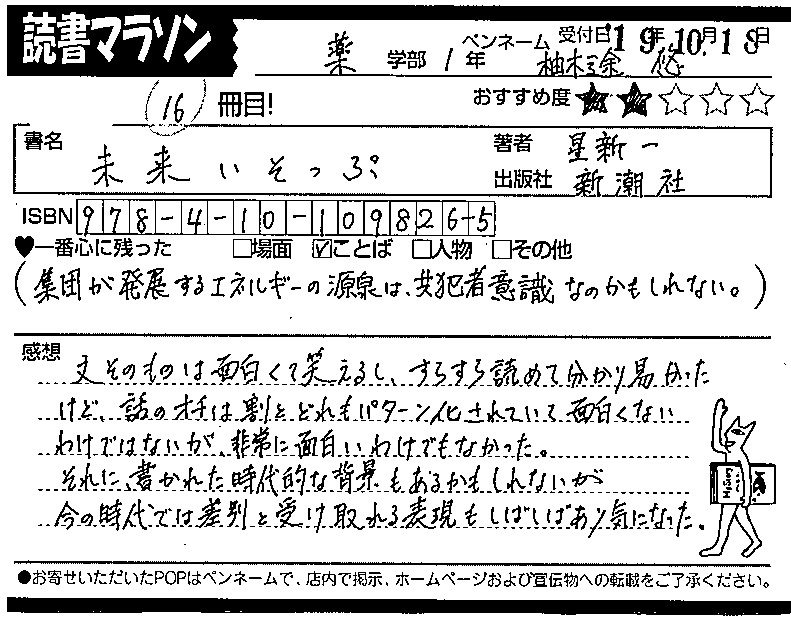 読書マラソン
薬 学部 1 年 ペンネーム 受付日 '19年10月18日
柚木
(16) 冊目! おすすめ度 ★★☆☆☆
書名 未来いそっぷ 著者 星新一
出版社 新潮社
ISBN 978-4-10-109826-5
♥一番心に残った □場面 ☑ことば □人物 □その他
(集団が発展するエネルギーの源泉は、共犯者意識なのかもしれない。)
感想
文そのものは面白くて笑えるし、すらすら読めて分かり易かった
けど、話のオチは割とどれもパターン化されていて面白くない
わけではないが、非常に面白いわけでもなかった。
それに、書かれた時代的な背景もあるかもしれないが
今の時代では差別と受け取れる表現もしばしばあり気になった。
●お寄せいただいたPOPはペンネームで、店内で掲示、ホームページおよび宣伝物への転載をご了承ください。